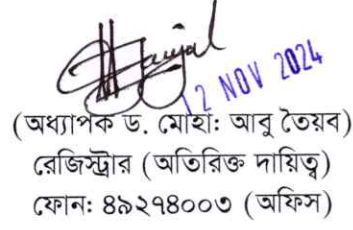 12 NOV 2024
(অধ্যাপক ড. মোহাঃ আবু তৈয়ব)
রেজিস্ট্রার (অতিরিক্ত দায়িত্ব)
ফোনঃ ৪৯২৭৪০০৩ (অফিস)